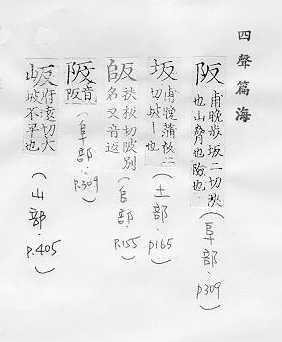 四聲篇海
阪 甫晚步坂二切陂也山脅也險也 (阜部·p309)
坂 甫晚蒲板二切坡|也 (土部·p165)
𨸏反 扶板切坡別名又音返 (𨸏部·P.155)
音阪 (阜部·P.309)
岅 府遠切大坡不平也 (山部·P.405)